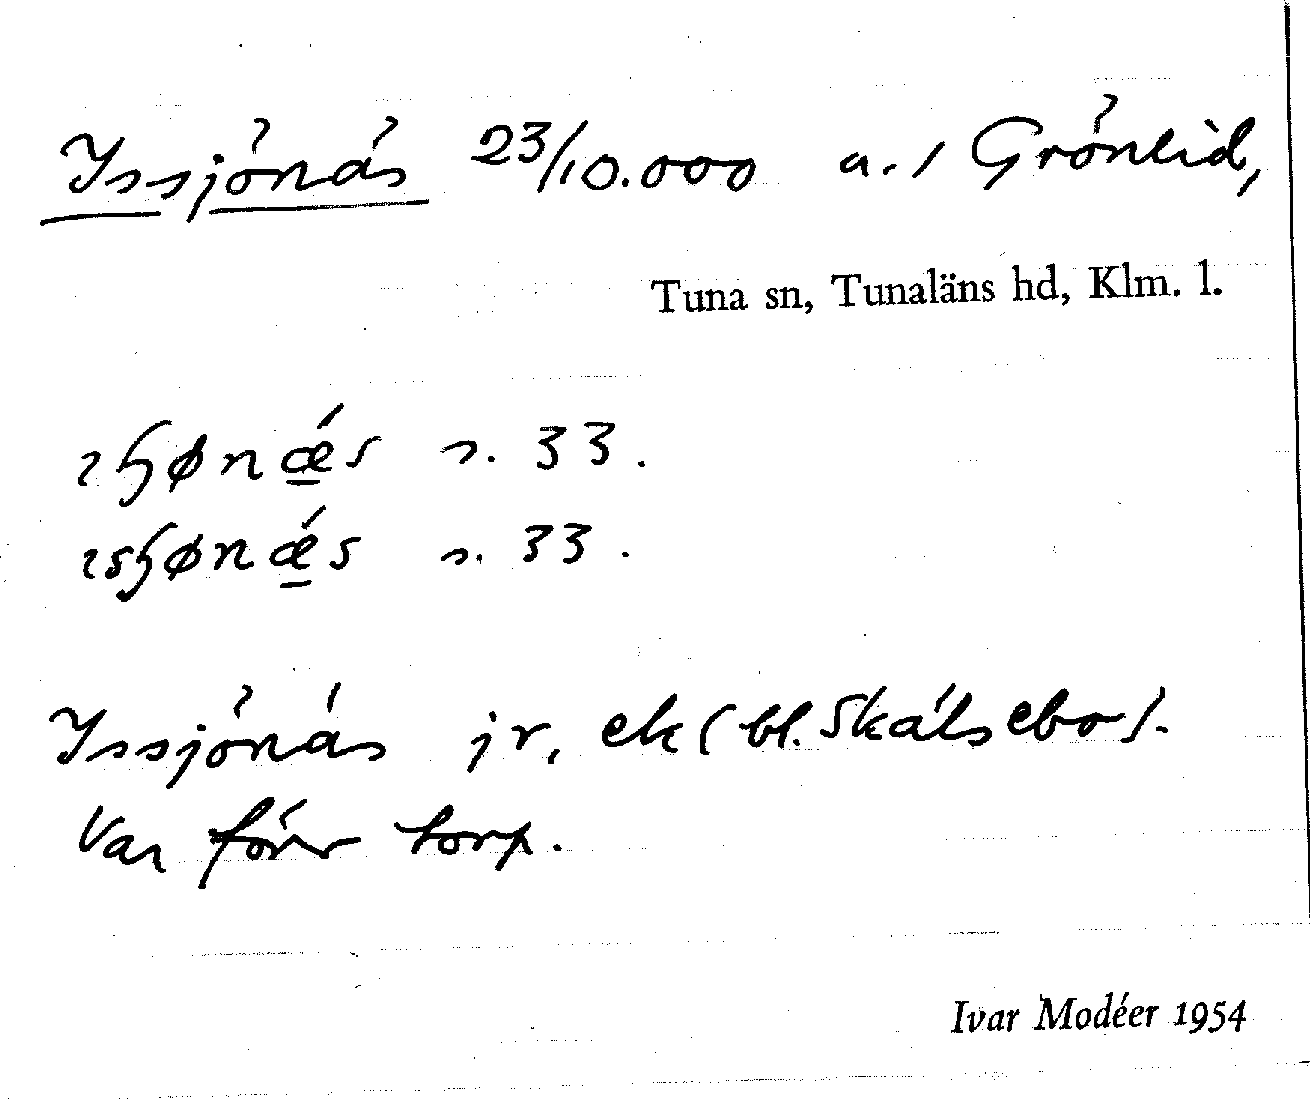 Issjönäs 23/10.000 a./ Grönlid,
Tuna sn, Tunaläns hd, Klm. l.
n. 33.
n. 33.
Issjönäs jr, ek (bl. Skälsebo).
Var förr torp.
Ivar Modéer 1954